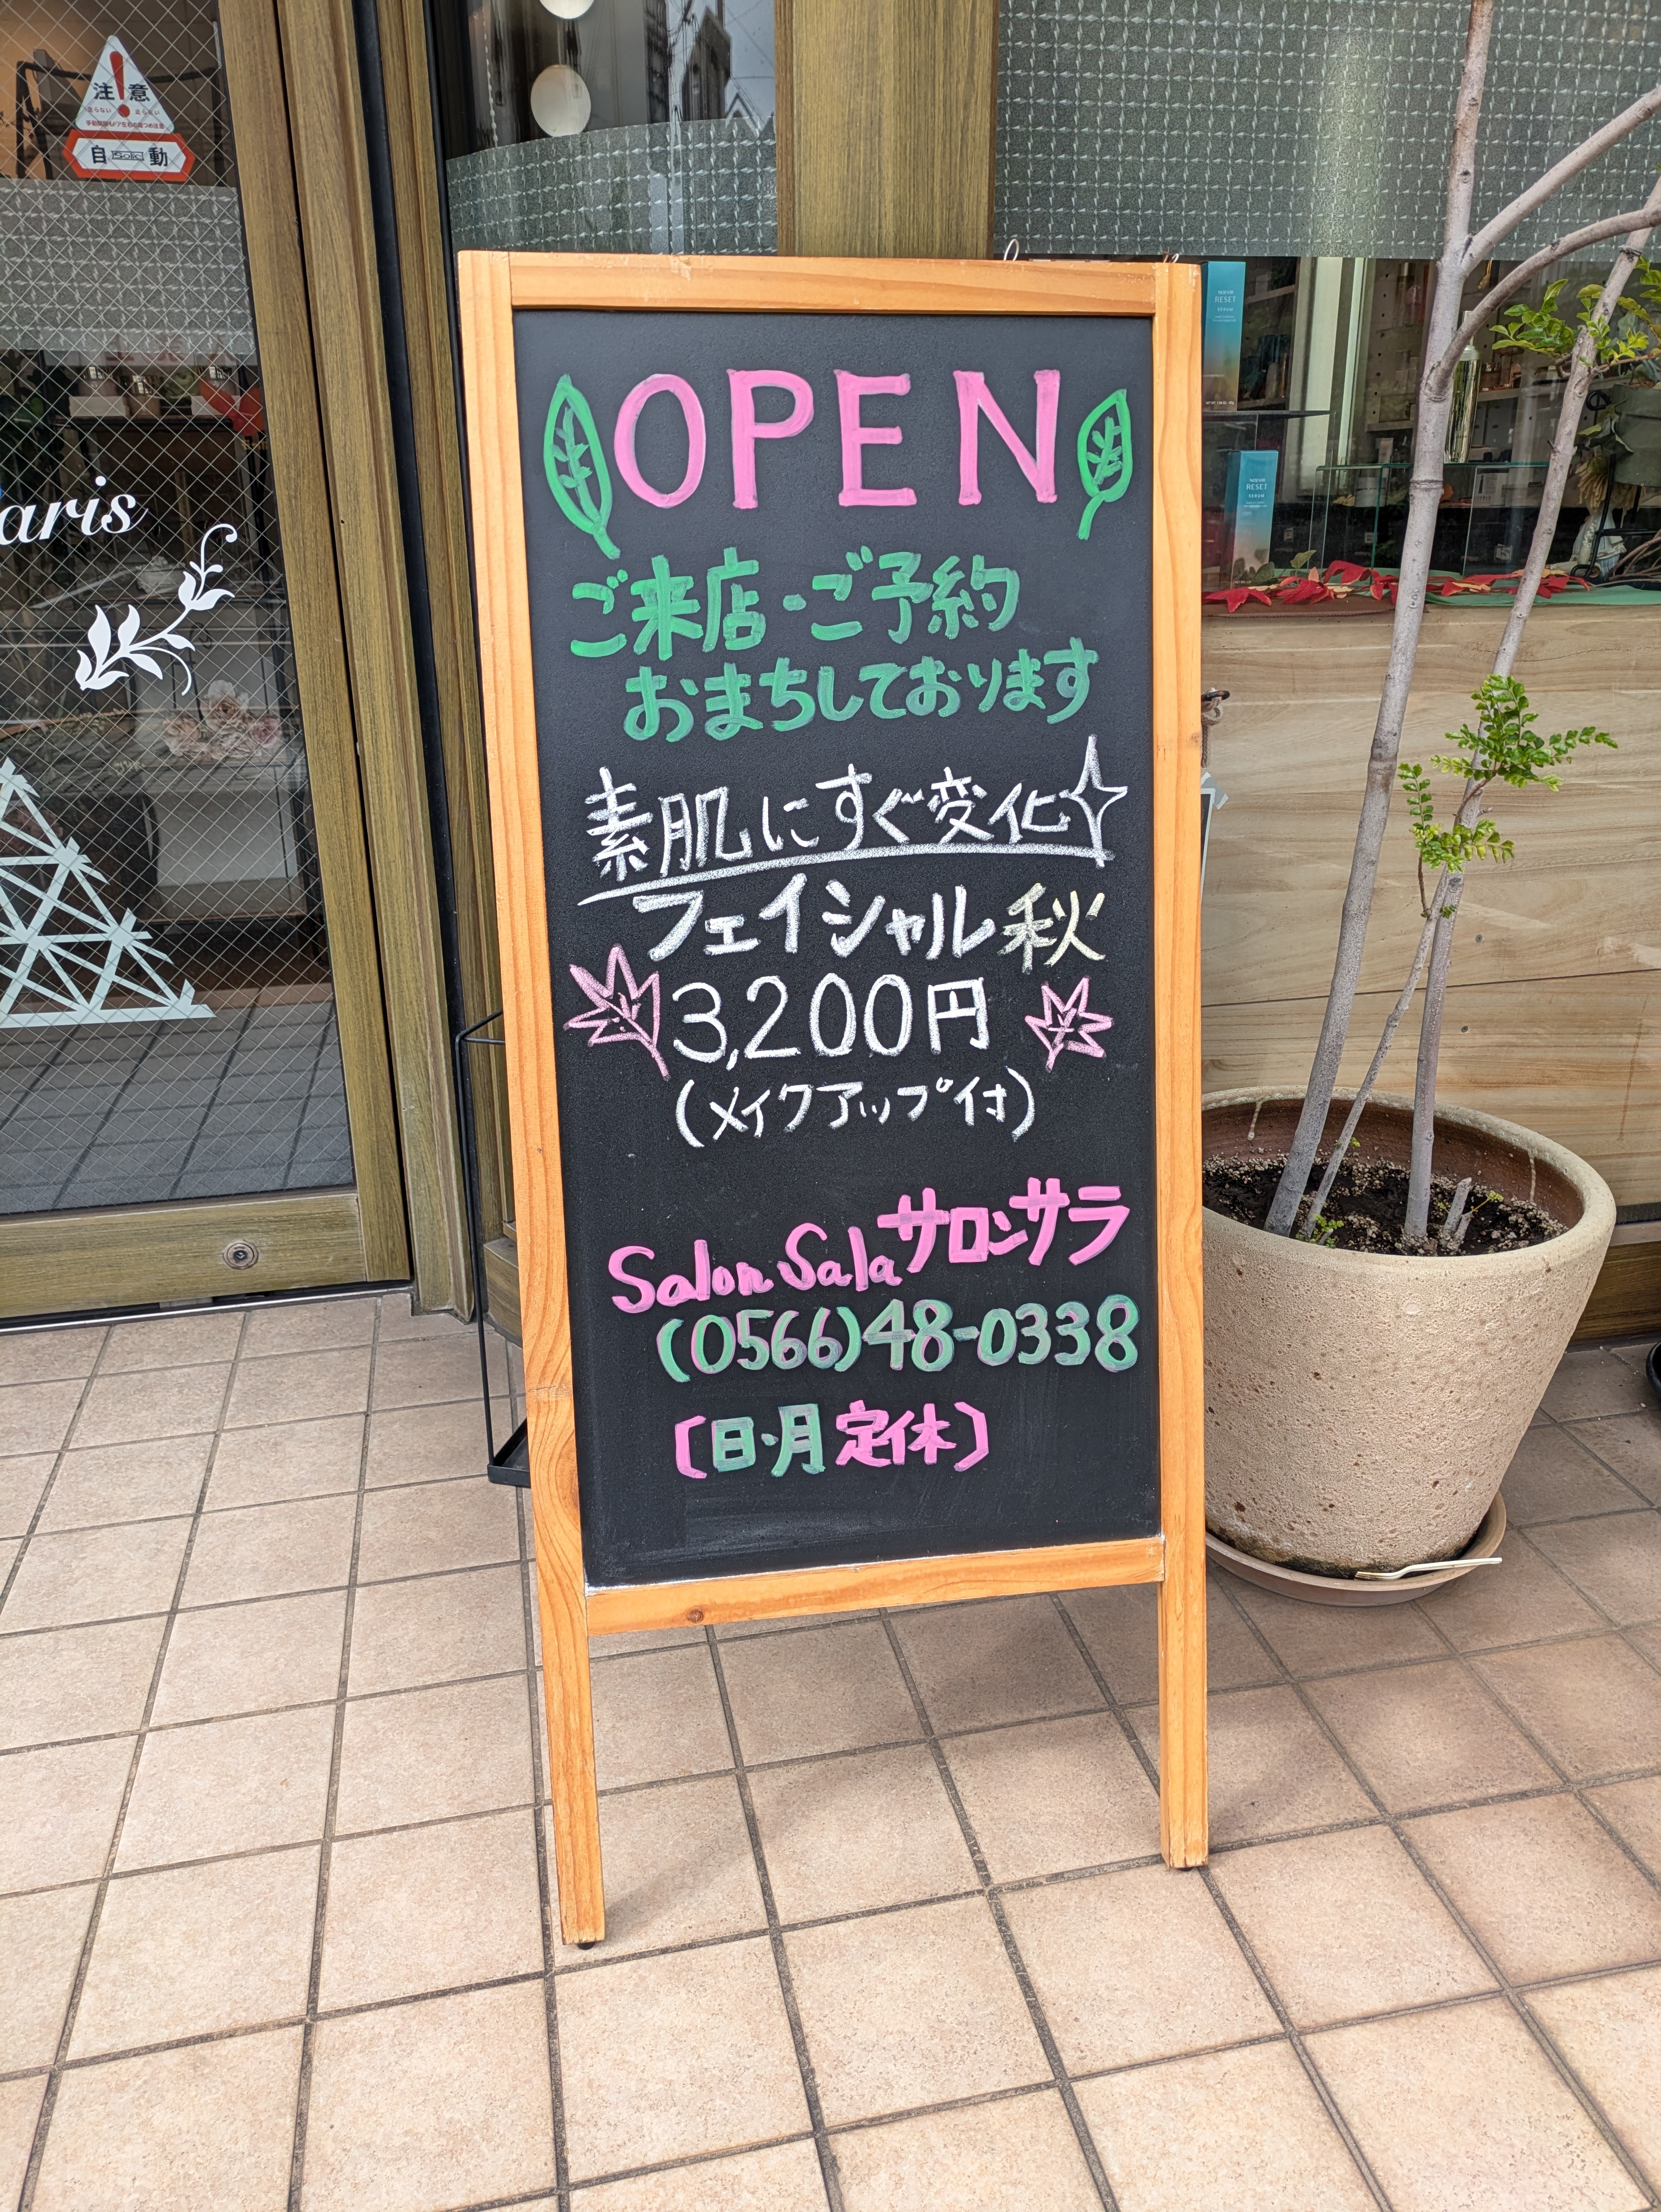 注意
自動
aris
OPEN
ご来店・ご予約
おまちしております
素肌にすぐ変化
フェイシャル秋
3,200円
(メイクアップ付)
Salon Sala サロンサラ
(0566)48-0338
[日・月定休]
NOEVIR
RESET
SERUM
NOEVIR
RESET
SERUM